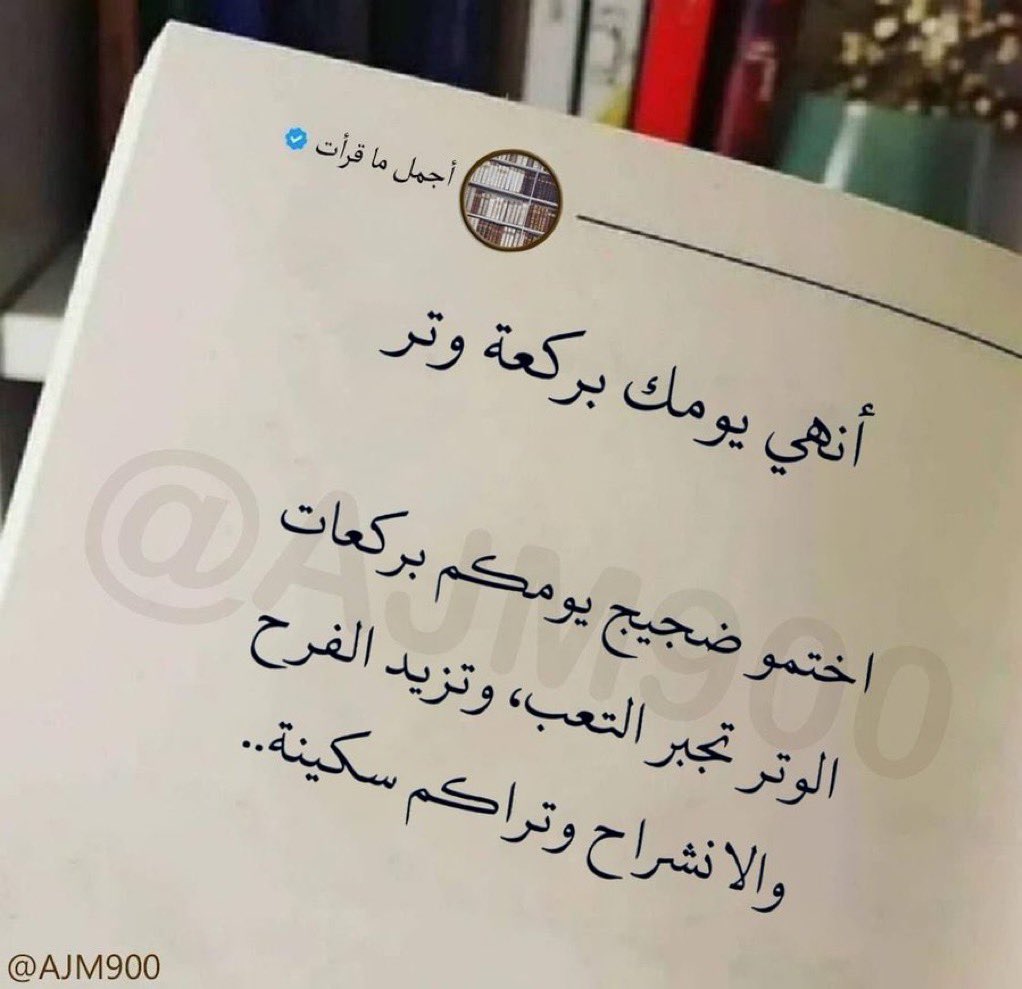 أجمل ما قرأت
أنهي يومك بركعة وتر
اختمو ضجيج يومكم بركعات
الوتر تجبر التعب، وتزيد الفرح
والانشراح وتراكم سكينة..
@AJM900
@AJM900